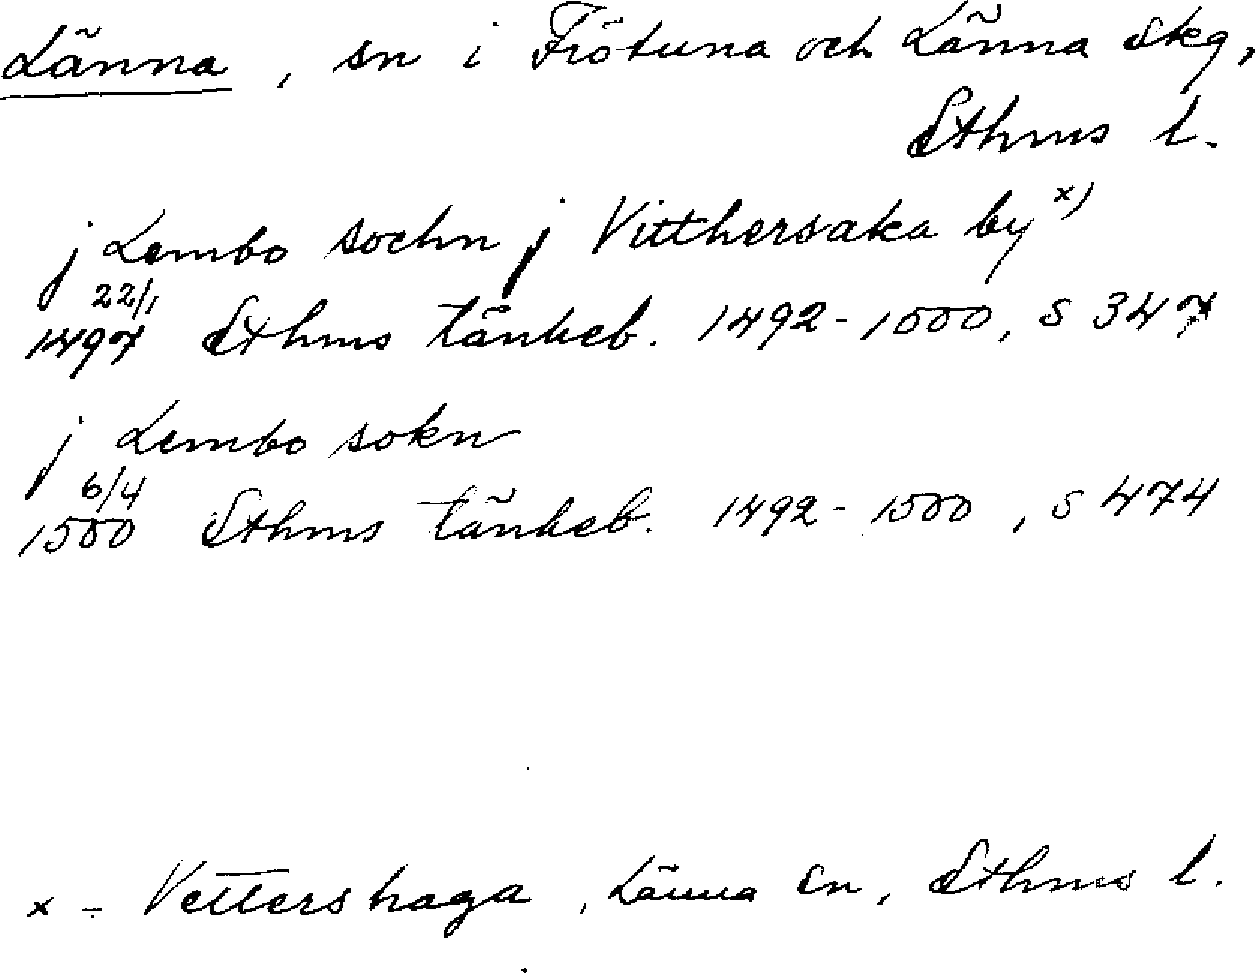 Länna, sn i Frötuna och Länna Skg,
Sthms l.
j Lembo sochn j Vitthersaka by x)
22/1
1497 Sthms tänkeb. 1492-1500, s 347
j Lembo sokn
6/4
1500 Sthms tänkeb. 1492-1500, s 474
x = Vettershaga, Länna Sn, Sthms l.